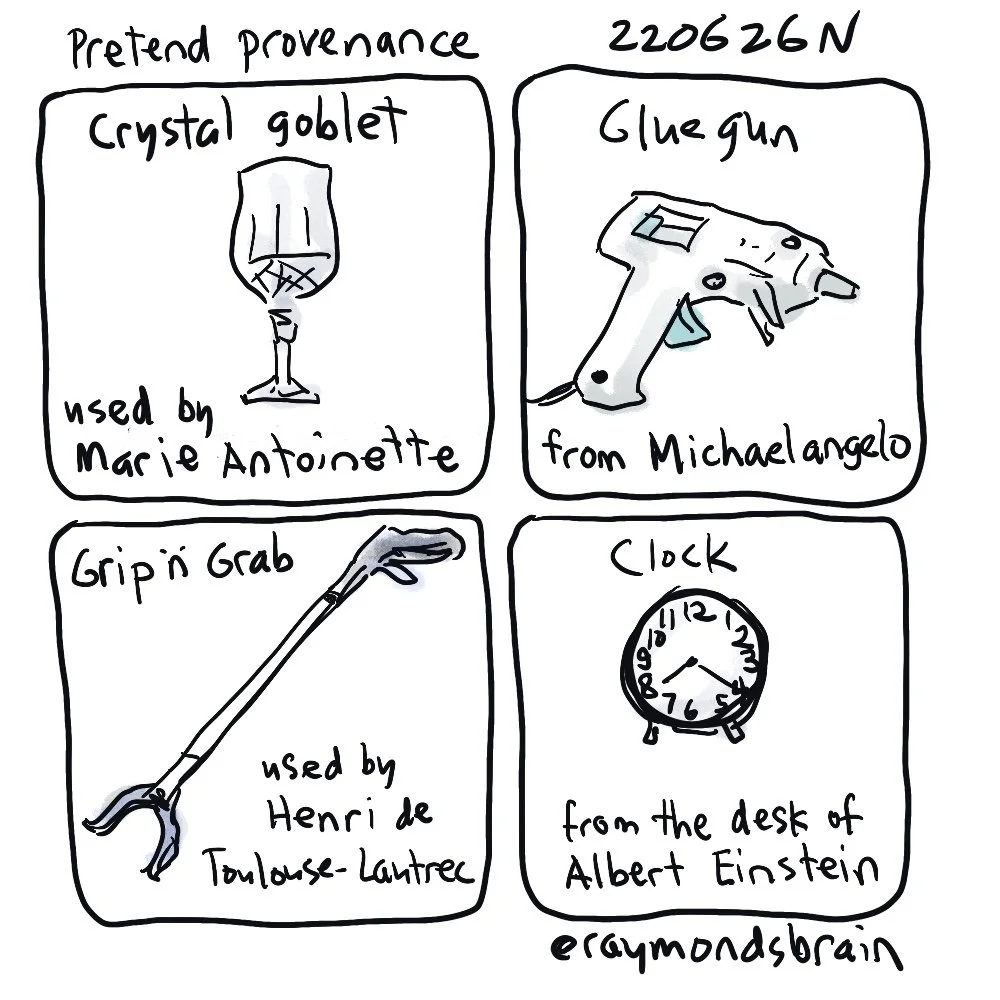 Pretend provenance
220626N
Crystal goblet
used by
Marie Antoinette
Glue gun
from Michaelangelo
Grip 'n' Grab
used by
Henri de
Toulouse-Lautrec
Clock
11 12 1
10 2
9 3
8 4
7 6 5
from the desk of
Albert Einstein
@raymondsbrain